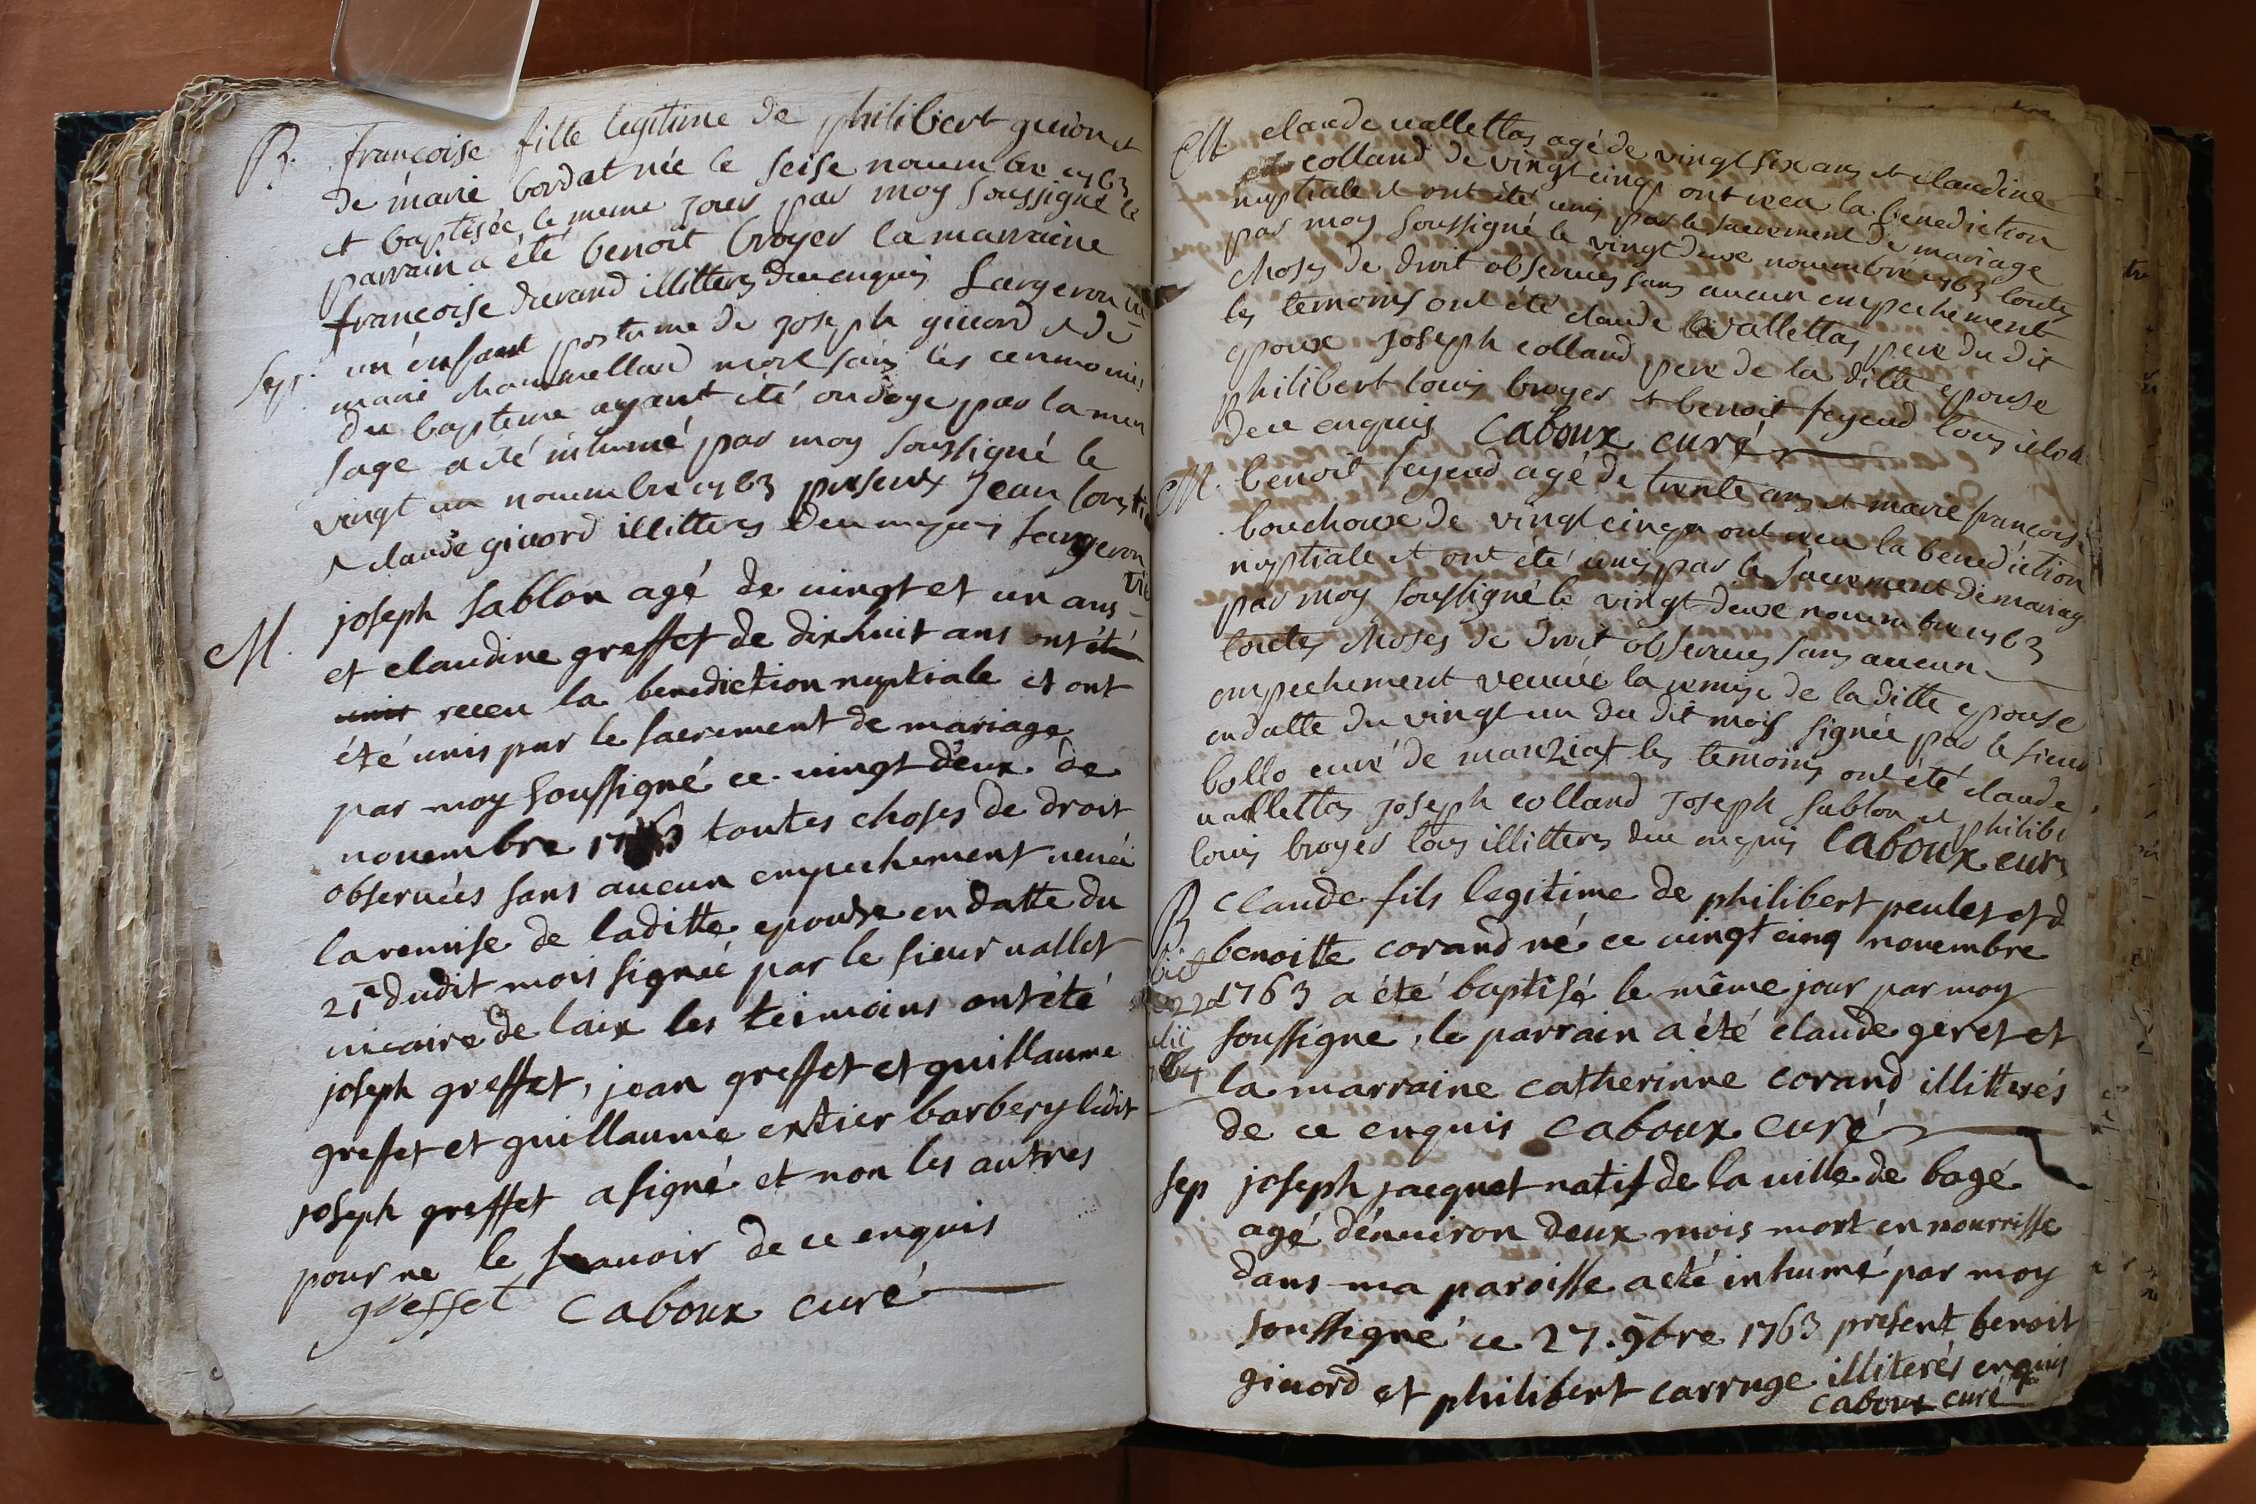 B. françoise fille legitime de philibert guion et
de marie bordat née le seise nouembre 1763
et baptisée le meme jour par moy soussigné le
parrain a été benoit broyer la marraine
françoise durand illitterés de ce enquis fargeron vic
Sep. un enfant postume de joseph giuord et de
marie chaumelland mort sans les ceremonies
du bapteme ayant été ondoye par la mere
sage a été inhumé par moy soussigné le
vingt un nouembre 1763 presents jean
et claude giuord illitterés de ce enquis fargeron
vic
M. joseph sablon agé de uingt et un ans
et claudine greffet de dixhuit ans ont été
unis receu la benediction nuptiale et ont
été unis par le sacrement de mariage
par moy soussigné ce uingt deux de
nouembre 1763 toutes choses de droit
obseruées sans aucun empechement ueuë
la remise de laditte epouse en datte du
21e dudit mois signée par le sieur uallet
uicaire de laix les teimoins ont été
joseph greffet, jean greffet et guillaume
greffet et guillaume entier barbery ledit
joseph greffet a signé et non les autres
pour ne le scauoir de ce enquis
greffet caboux curé
M. claude uallettas agé de vingt six ans et claudine
colland de vingt cinq ont receu la benediction
nuptiale et ont été unis par le sacrement de mariage
par moy soussigné le vingt deux nouembre 1763 toutes
choses de droit obseruées sans aucun empechement
les temoins ont été claude uallettas pere du dit
epoux joseph colland pere de la ditte epouse
philibert louis broyer et benoit feyeud tous
de ce enquis caboux curé
M. benoit feyeud agé de trente ans et marie françoise
bouchoux de vingt cinq ont receu la benediction
nuptiale et ont été unis par le sacrement de mariag
par moy soussigné le vingt deux nouembre 1763
toutes choses de droit obseruées sans aucun
empechement veuüe la remise de la ditte epouse
en datte du vingt un du dit mois signée par le sieur
bollo curé de manziat les temoins ont été claude
uallettas joseph colland joseph sablon et philibe
louis broyer tous illitterés de ce enquis caboux curé
B claude fils legitime de philibert peulet et d
benoitte corand né ce uingt cinq nouembre
1763 a été baptisé le même jour par moy
soussigné, le parrain a été claude geret et
la marraine catherinne corand illitterés
de ce enquis caboux curé
sep joseph jacquet natif de la uille de bagé
agé d'enuiron deux mois mort en nourrisse
dans ma paroisse a eté inhumé par moy
soussigné ce 27. 9bre 1763 present benoit
giuord et philibert carruge illiterés enquis
caboux curé